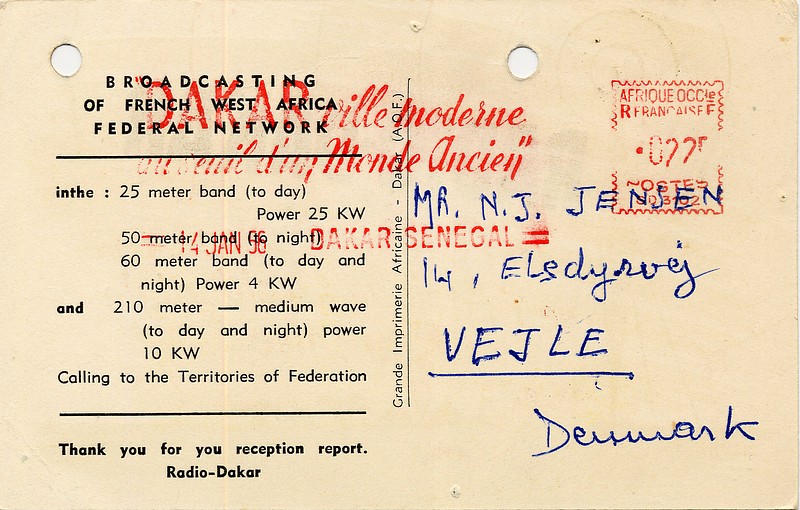 BROADCASTING
OF FRENCH WEST AFRICA
FEDERAL NETWORK
inthe : 25 meter band (to day)
Power 25 KW
50 meter band (to night)
60 meter band (to day and
night) Power 4 KW
and 210 meter — medium wave
(to day and night) power
10 KW
Calling to the Territories of Federation
Thank you for you reception report.
Radio-Dakar
"DAKAR ville moderne
au seuil d'un Monde Ancien"
14 JAN 56 DAKAR SENEGAL
Grande Imprimerie Africaine - Dakar (A.O.F.)
AFRIQUE OCCle
R FRANCAISE F
POSTES
MR. N.J. JENSEN
14,
VEJLE
Denmark